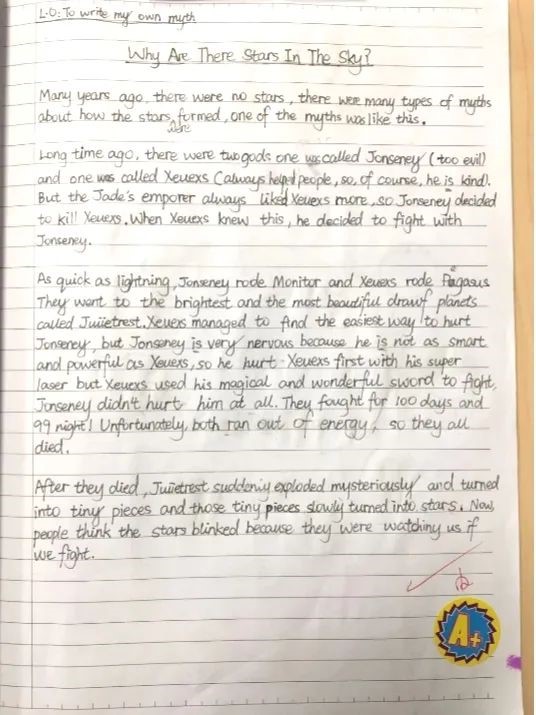 L.O: To write my own myth
Why Are There Stars In The Sky?
Many years ago, there were no stars, there were many types of myths
about how the stars were formed, one of the myths was like this.
Long time ago, there were two gods one was called Jonseney (too evil)
and one was called Xeuexs (always helped people, so, of course, he is kind).
But the Jade's emporer always liked Xeuexs more, so Jonseney decided
to kill Xeuexs. When Xeuexs knew this, he decided to fight with
Jonseney.
As quick as lightning, Jonseney rode Monitor and Xeuexs rode Pegasus
They want to the brightest and the most beautiful drawf planets
called Juiietrest. Xeuexs managed to find the easiest way to hurt
Jonseney, but Jonseney is very nervous because he is not as smart
and powerful as Xeuexs, so he hurt Xeuexs first with his super
laser but Xeuexs used his magical and wonderful sword to fight,
Jonseney didn't hurt him at all. They fought for 100 days and
99 night! Unfortunately, both ran out of energy, so they all
died.
After they died, Juiietrest suddenly exploded mysteriously and turned
into tiny pieces and those tiny pieces slowly turned into stars. Now,
people think the stars blinked because they were watching us if
we fight.
A+